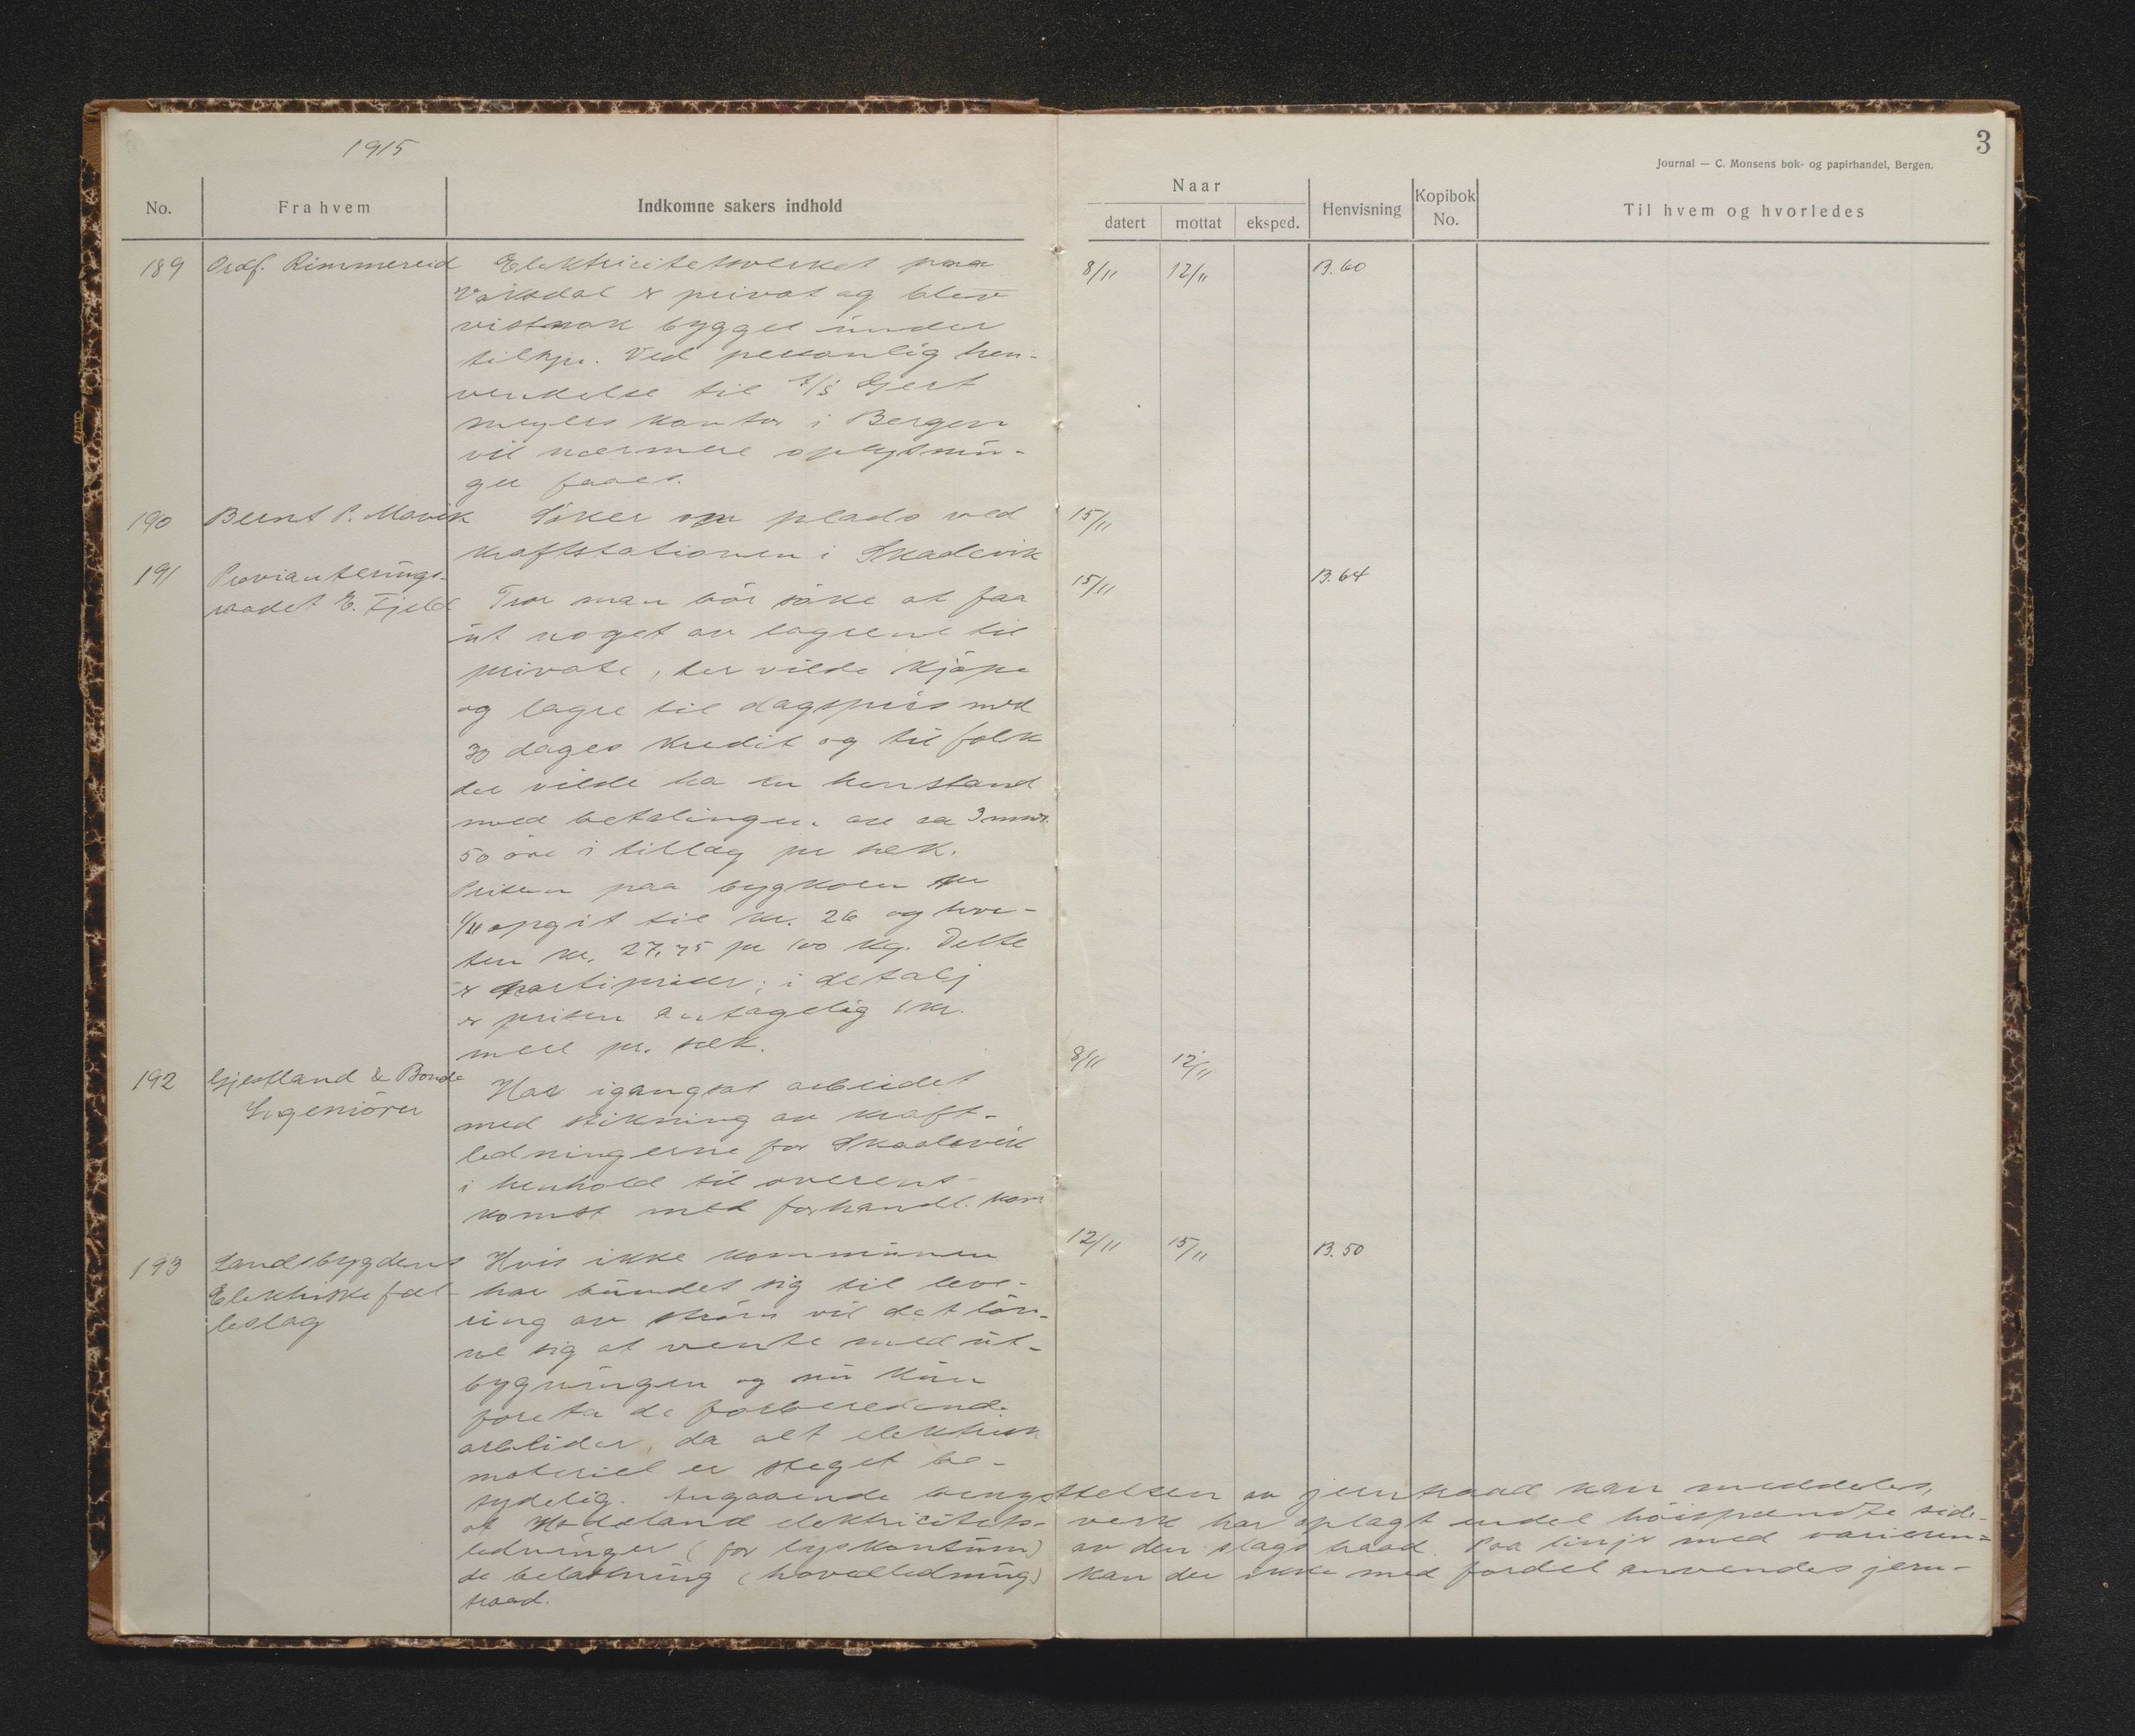 1915
3
Journal — C. Monsens bok- og papirhandel, Bergen.
No. Fra hvem Indkomne sakers indhold Naar datert mottat eksped. Henvisning Kopibok No. Til hvem og hvorledes
189 Ordf. Rimmereid Elektricitetsverket paa 8/11 12/11 B. 60
Vaksdal er privat og blev
vistnok bygget under
Ved personlig hen-
vendelse til A/S Gjert
Meyers kontor i Bergen
vil nærmere oplysnin-
ger faaes.
190 Bernt P. Mavik Søker om plads ved 15/11
kraftstationen i Skadevik
191 Provianterings- 15/11 B. 64
raadet E. Fjeld Tror man bør søke at faa
ut noget av lagrene til
private, der vilde kjøpe
og lagre til dagspris med
30 dages kredit og til folk
der vilde ha en henstand
med betalingen av ca 3 mndr.
50 øre i tillæg pr sek.
Prisen paa bygkorn er
1/11 opgit til kr. 26 og hve-
ten kr. 27,75 pr 100 kg. Dette
er partipriser; i detalj
er prisen antagelig 1 kr.
mere pr. sek.
192 Gjestland & Bonde Har igangsat arbeidet 8/11 12/11
Ingeniører med stikning av kraft-
ledningerne for Skaalevik
i henhold til overens-
komst med forhandl. kom
193 Landsbygdens Hvis ikke kommunen 12/11 15/11 B. 50
Elektriske fæl- har bundet sig til leve-
leslag ring av strøm vil det løn-
ne sig at vente med ut-
bygningen og nu kun
foreta de forberedende
arbeider, da alt elektrisk
materiel er steget be-
tydelig. Angaaende benyttelsen av jerntraad kan meddeles,
at Hodeland elektricitets- verk har oplagt endel høispændte side-
ledninger (for lyskontum) av den slags traad. Paa linjer med varieren=
de belastning (hovedledning) kan der ikke med fordel anvendes jern-
traad.